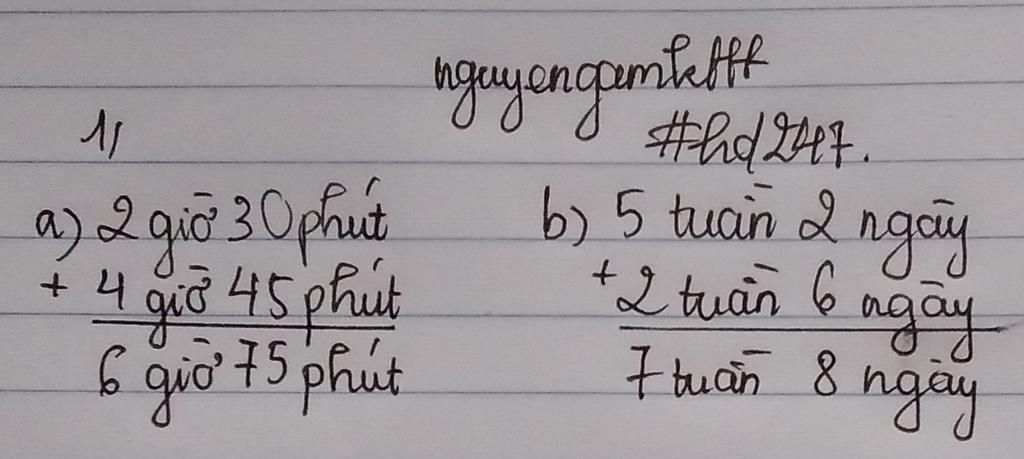 #hd247.
1,
a) 2 giờ 30 phút
+ 4 giờ 45 phút
6 giờ 75 phút
b) 5 tuần 2 ngày
+ 2 tuần 6 ngày
7 tuần 8 ngày